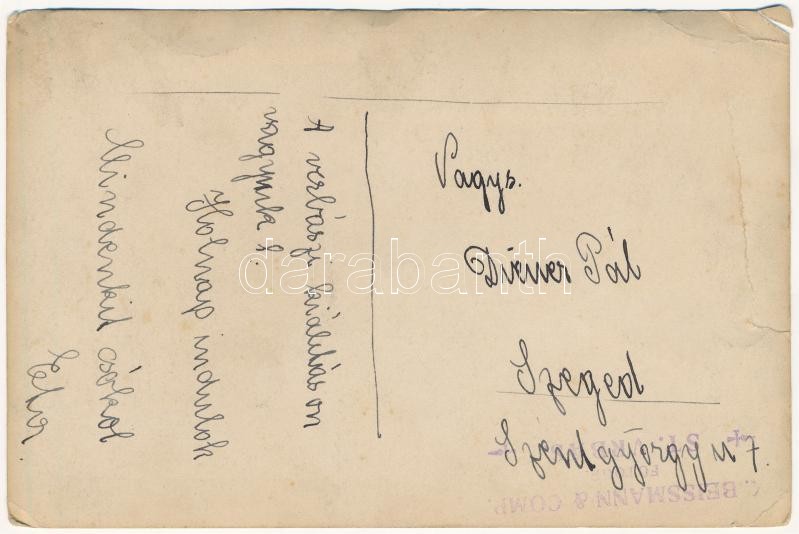 A verbászi kiálitáson
vagyunk!
Holnap indulok
Mindenkit csókol
Vagys.
Diener Pál
Szeged
Szentgyörgy u 7.
BEISSMANN & COMP.
darabanth